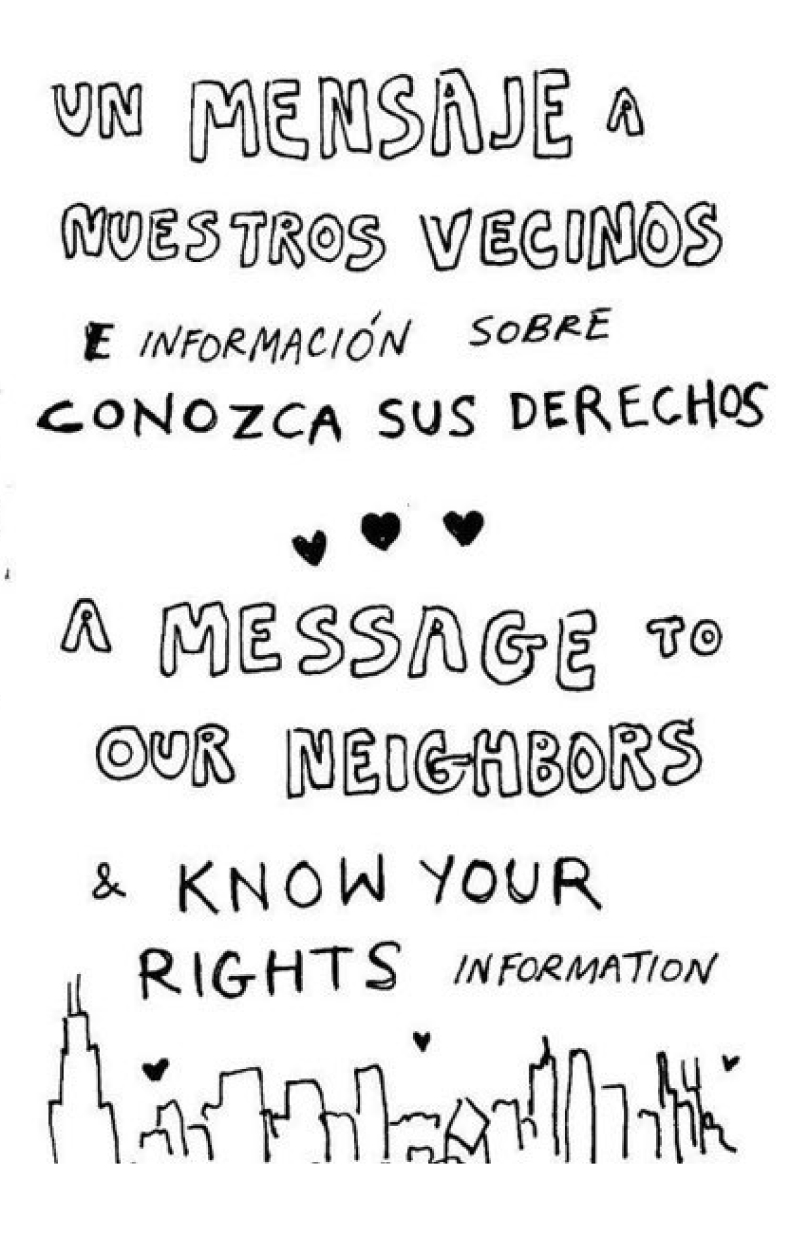 UN MENSAJE A
NUESTROS VECINOS
E INFORMACIÓN SOBRE
CONOZCA SUS DERECHOS
A MESSAGE TO
OUR NEIGHBORS
& KNOW YOUR
RIGHTS INFORMATION